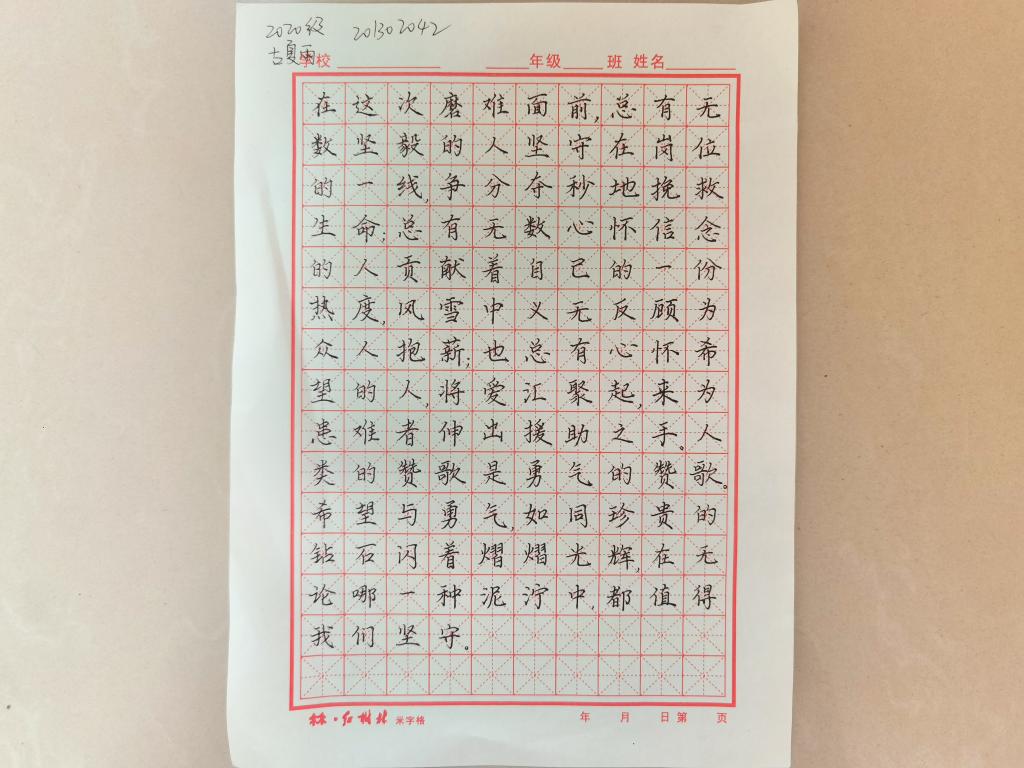 2020级 201302042
古夏雨
学校 年级 班 姓名
在这次磨难面前,总有无
数坚毅的人坚守在岗位
的一线,争分夺秒地挽救
生命;总有无数心怀信念
的人贡献着自己的一份
热度,风雪中义无反顾为
众人抱薪;也总有心怀希
望的人,将爱汇聚起,来为
患难者伸出援助之手。人
类的赞歌是勇气的赞歌。
希望与勇气,如同珍贵的
钻石闪着熠熠光辉,在无
论哪一种泥泞中,都值得
我们坚守。
米字格 年 月 日 第 页